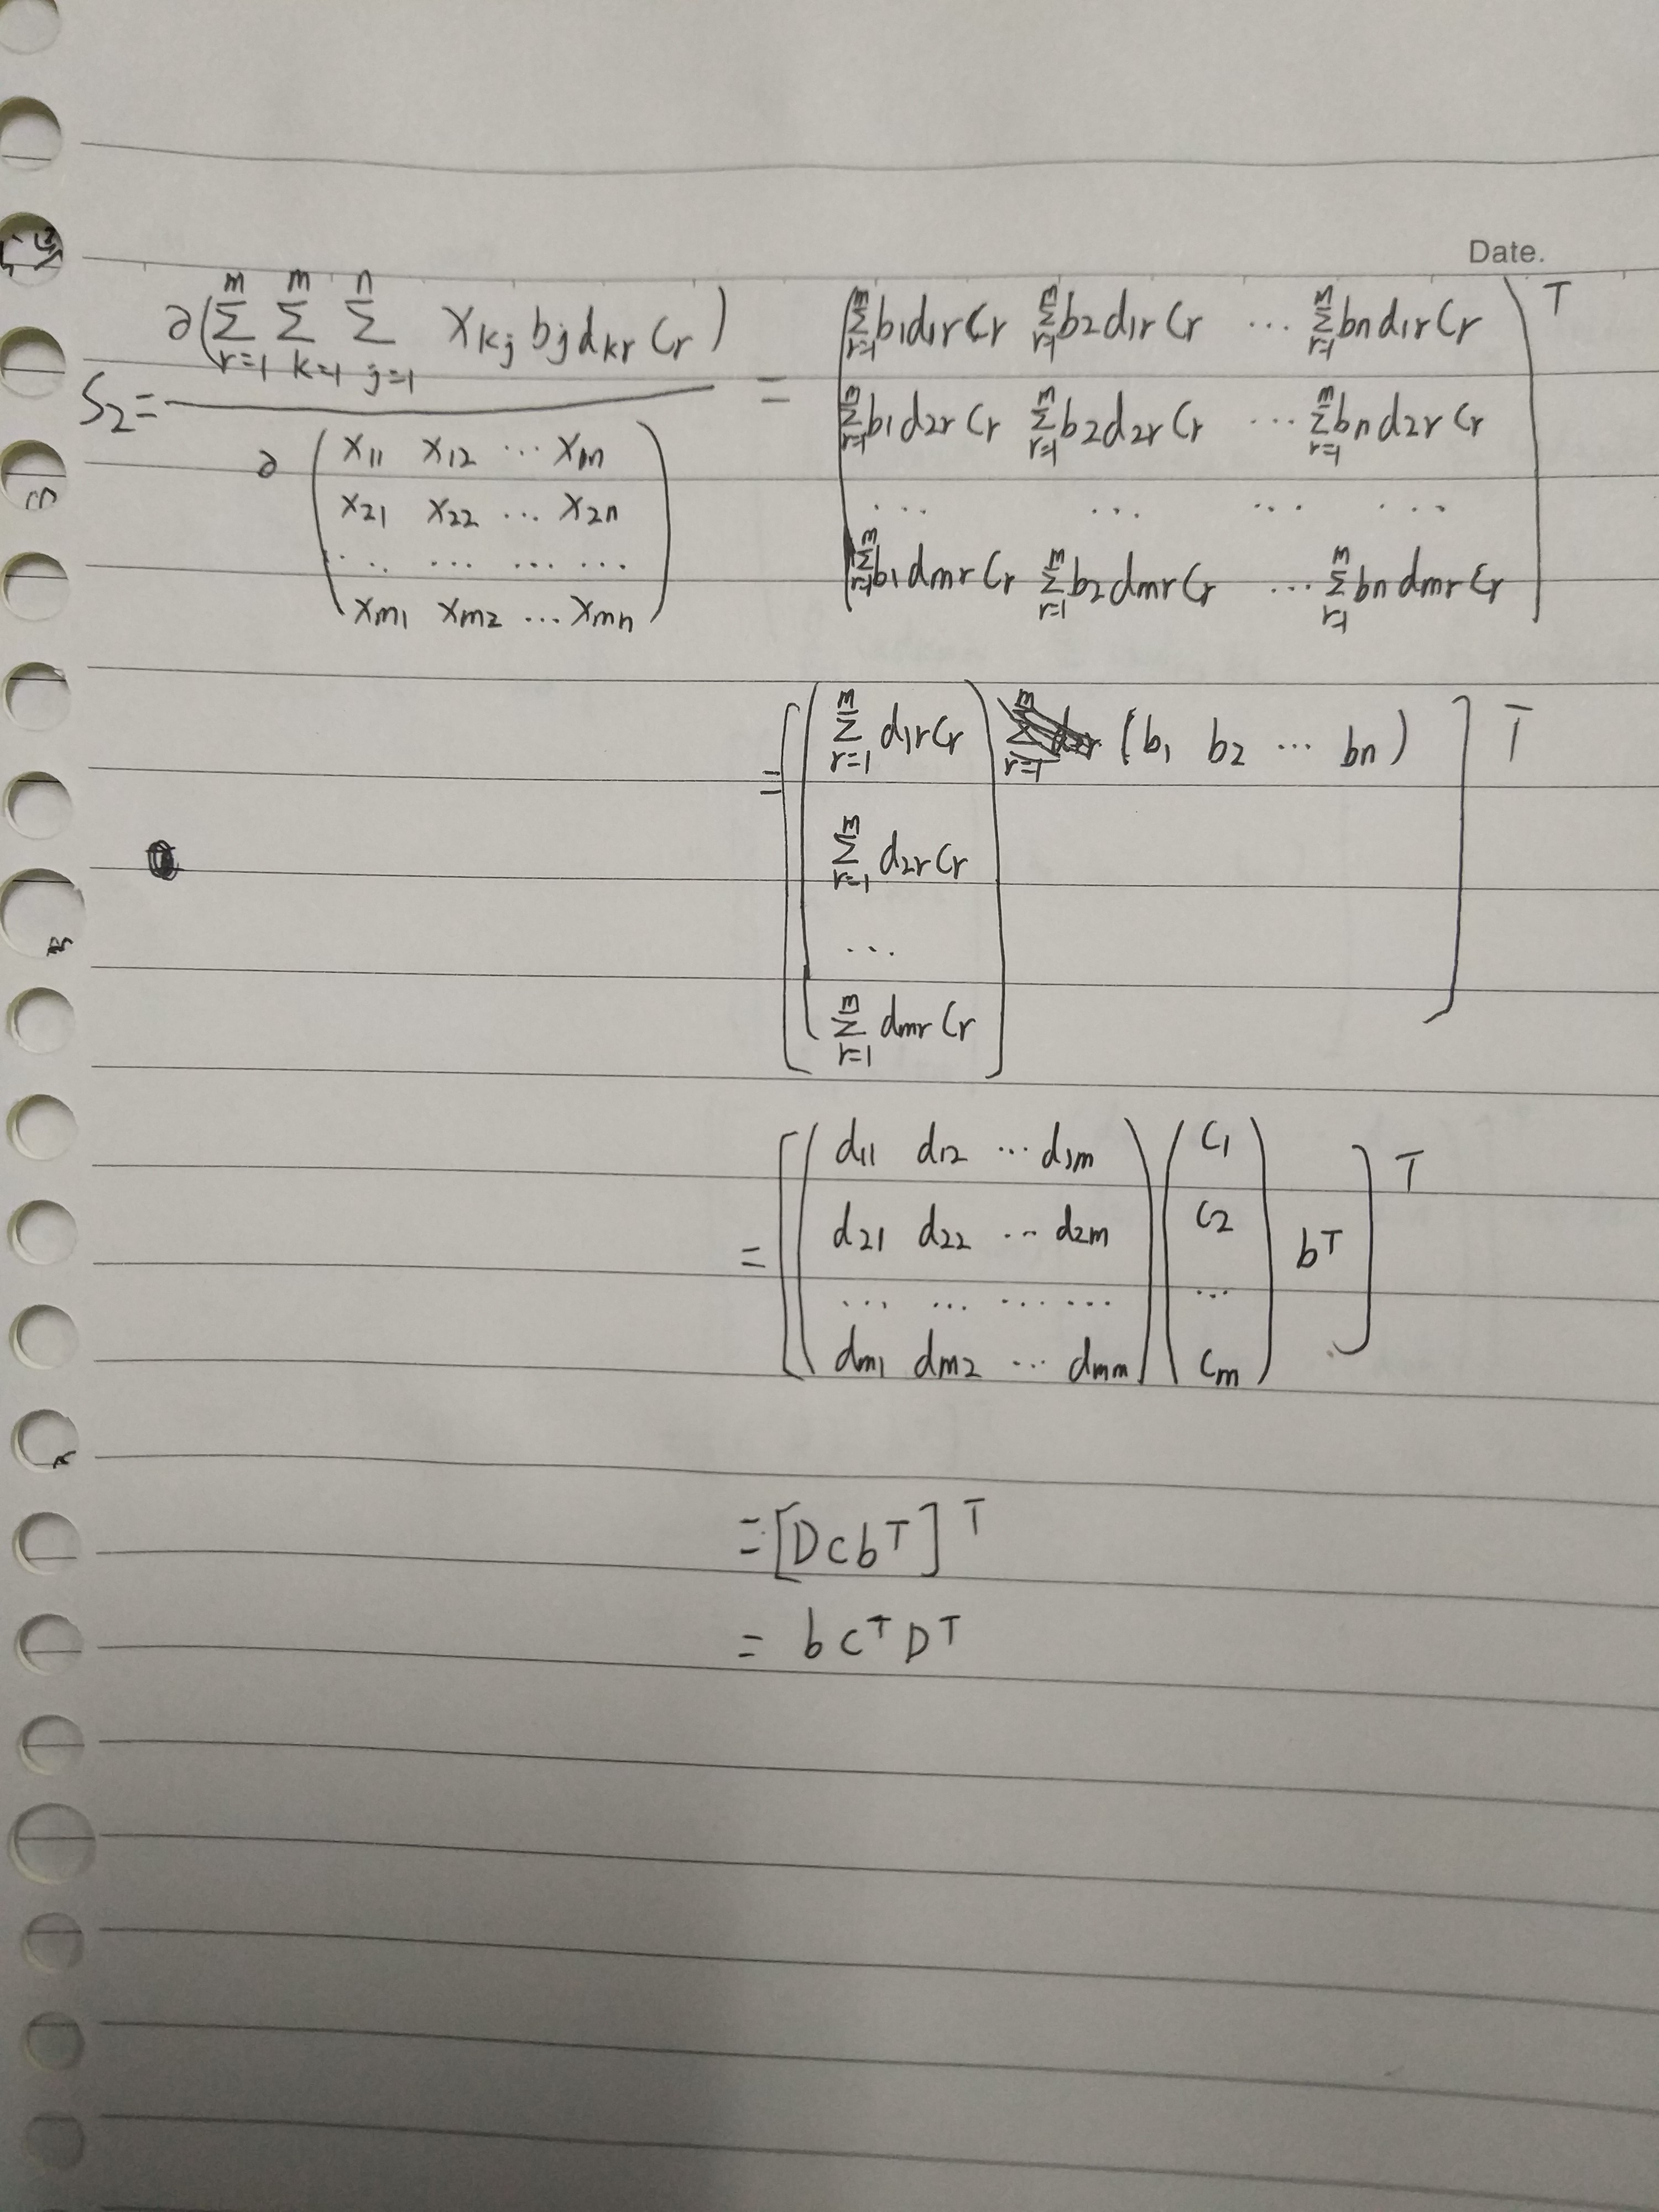 Date.
S₂ = ∂(∑_{r=1}^{m} ∑_{k=1}^{m} ∑_{j=1}^{n} x_{kj} b_j d_{kr} c_r) / ∂ ( x₁₁ x₁₂ ⋯ x_{1n} ; x₂₁ x₂₂ ⋯ x_{2n} ; ⋯ ⋯ ⋯ ⋯ ; x_{m1} x_{m2} ⋯ x_{mn} ) = ( ∑_{r=1}^{m} b₁d_{1r}c_r ∑_{r=1}^{m} b₂d_{1r}c_r ⋯ ∑_{r=1}^{m} b_n d_{1r}c_r ; ∑_{r=1}^{m} b₁d_{2r}c_r ∑_{r=1}^{m} b₂d_{2r}c_r ⋯ ∑_{r=1}^{m} b_n d_{2r}c_r ; ⋯ ⋯ ⋯ ⋯ ; ∑_{r=1}^{m} b₁d_{mr}c_r ∑_{r=1}^{m} b₂d_{mr}c_r ⋯ ∑_{r=1}^{m} b_n d_{mr}c_r )^T
= [ ( ∑_{r=1}^{m} d_{1r}c_r ; ∑_{r=1}^{m} d_{2r}c_r ; ⋯ ; ∑_{r=1}^{m} d_{mr}c_r ) (b₁ b₂ ⋯ b_n) ]^T
= [ ( d₁₁ d₁₂ ⋯ d_{1m} ; d₂₁ d₂₂ ⋯ d_{2m} ; ⋯ ⋯ ⋯ ⋯ ; d_{m1} d_{m2} ⋯ d_{mm} ) ( c₁ ; c₂ ; ⋯ ; c_m ) b^T ]^T
= [D c b^T]^T
= b c^T D^T